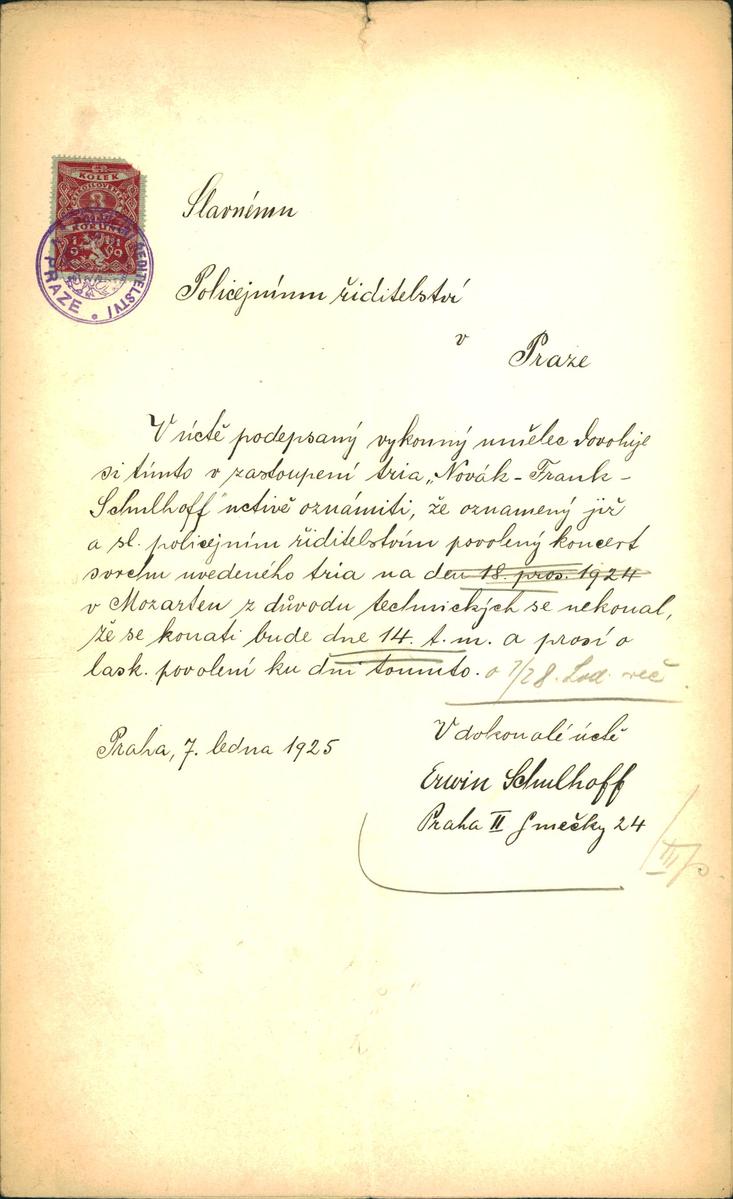 KOLEK
ČESKOSLOVENSKÝ
KORUN
1919
ŘEDITELSTVÍ
PRAZE
Slavnému
Policejnímu řiditelství
v
Praze
V úctě podepsaný vykonný umělec dovoluje
si tímto v zastoupení tria „Novák - Frank -
Schulhoff" uctivě oznámiti, že oznamený již
a sl. policejním řiditelstvím povolený koncert
svrchu uvedeného tria na den 18. pros. 1924
v Mozarteu z důvodu technických se nekonal,
že se konati bude dne 14. t. m. a prosí o
lask. povolení ku dni tomuto. o
Praha, 7. ledna 1925
V dokonalé úctě
Erwin Schulhoff
Praha II Smečky 24